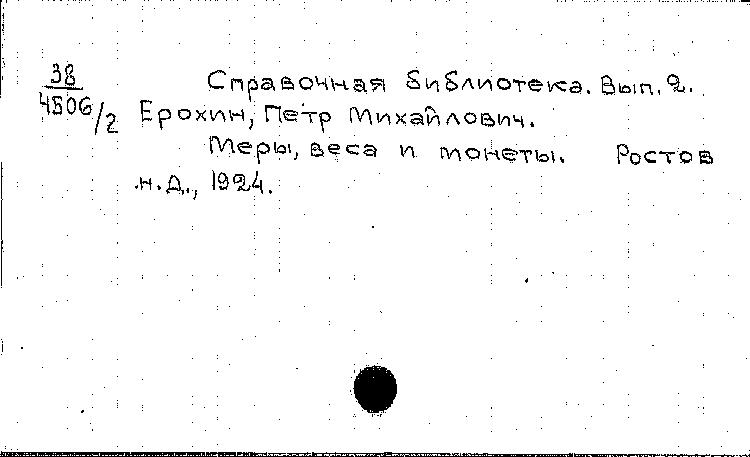 38
4506/2
Справочная библиотека. Вып. 2.
Ерохин, Петр Михайлович.
Меры, веса и монеты. Ростов
н. Д., 1924.